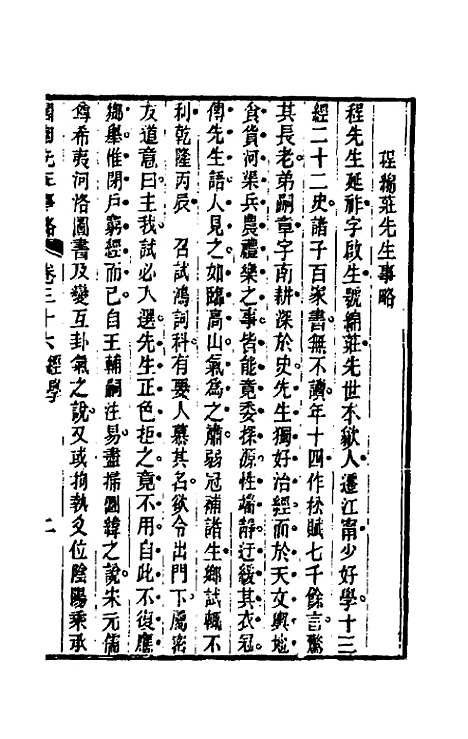 程綿莊先生事略
程先生延祚字啟生號綿莊先世本歙人遷江甯少好學十三
經二十二史諸子百家書無不讀年十四作松賦七千餘言驚
其長老弟嗣章字南耕深於史先生獨好治經而於天文輿地
食貨河渠兵農禮樂之事皆能竟委探源性端靜迂緩其衣冠
傳先生語人見之如臨高山氣為之肅弱冠補諸生鄉試輒不
利乾隆丙辰 召試鴻詞科有要人慕其名欲令出門下屬密
友道意曰主我試必入選先生正色拒之竟不用自此不復應
鄉舉惟閉戶窮經而已自王輔嗣注易盡掃圖緯之說宋元儒
尊希夷河洛圖書及變互卦氣之說又或拘執爻位陰陽乘承
國朝先正事略 卷三十六 經學 二